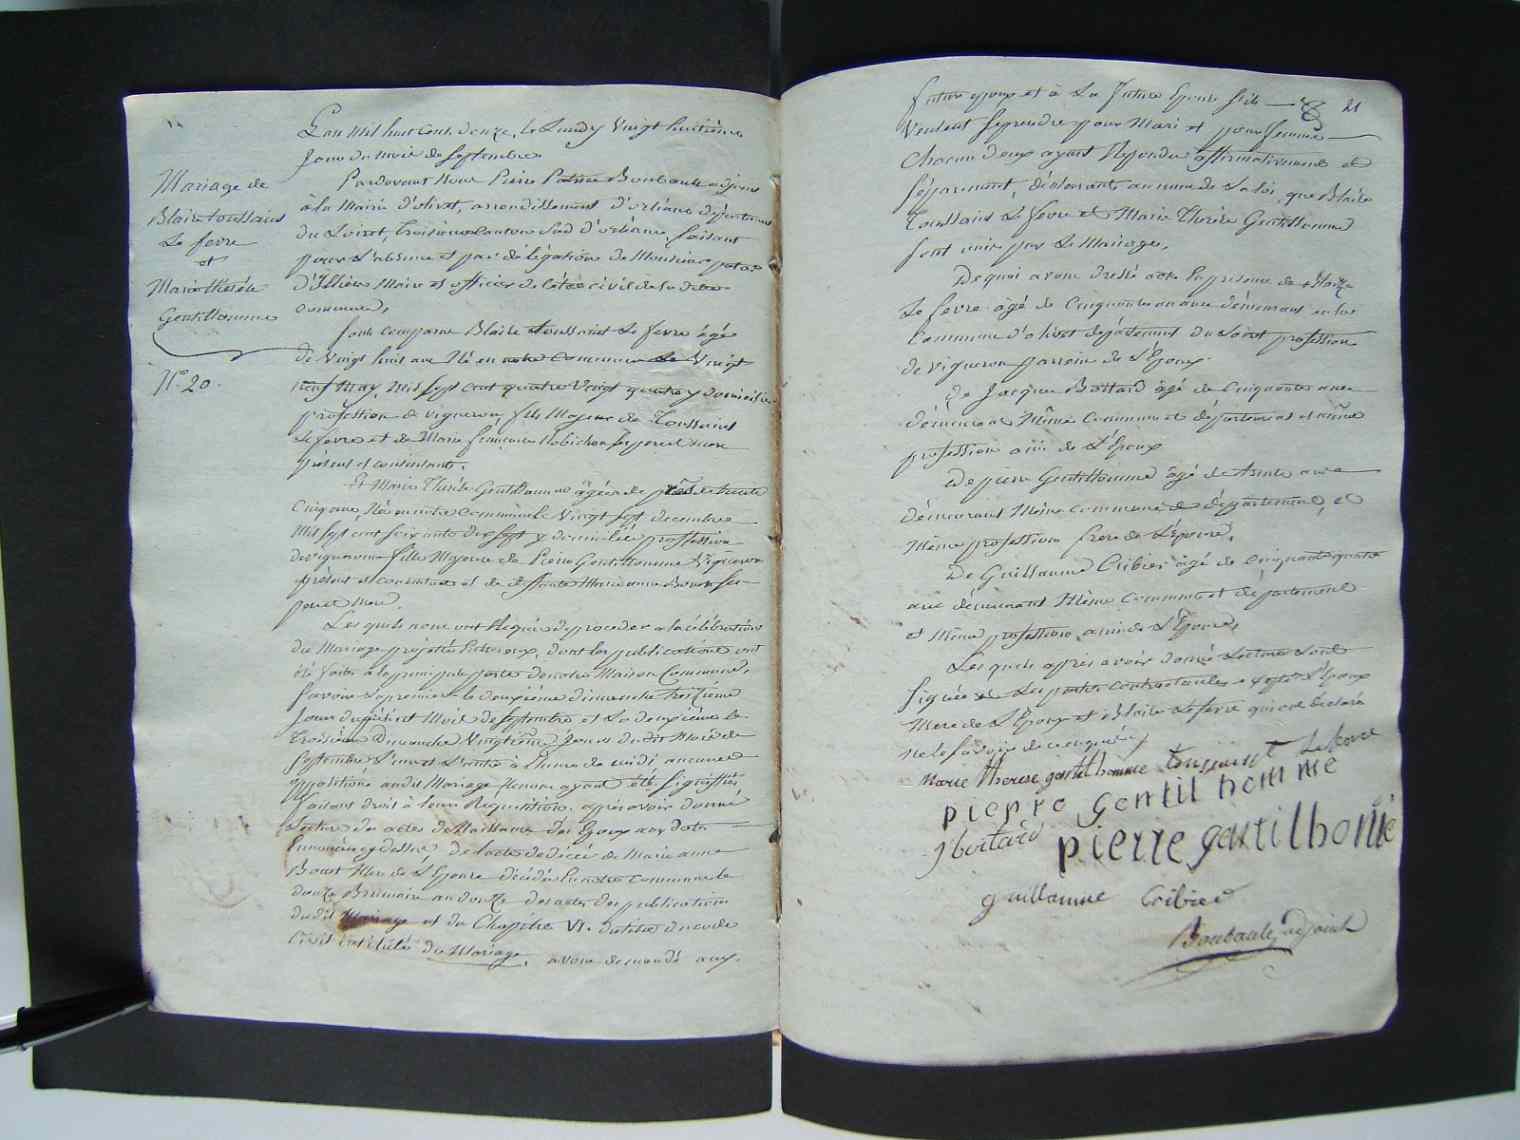 Mariage de
Blaise toussaint
Le fevre
et
Marie thérèse
Gentilhomme
N° 20.
L'an Mil huit Cent douze, le Lundy Vingt huitième
Jour du mois de Septembre
Pardevant Nous Pierre Boubault adjoint
à la Mairie d'olivet, arrondissement d'orléans département
du Loiret, troisième Canton Sud d'orléans, faisant
pour L'absence et par délégation de Monsieur
d'Illiers Maire et officier de l'état civil de la ditte
commune,
Sont comparus Blaise toussaint Le fevre âgé
de Vingt huit ans Né en notre Commune le Vingt
neuf May, Mil sept cent quatre Vingt quatre y domicilié
profession de vigneron, fils Majeur de Toussaint
Le fevre et de Marie françoise Robichon Ses pere et mere
présent et consentants.
Et Marie Thérèse Gentilhomme âgée de près de trente
Cinq ans, Née en notre Commune le Vingt Sept decembre
Mil sept cent soixante dix sept y domiciliée profession
de vigneronne fille Majeure de Pierre Gentilhomme Vigneron
présent et consentant et de deffunte Marie anne Ses
pere et Mere.
Les quels nous ont Requis de proceder a la célébration
du Mariage projetté entre eux, dont les publications ont
été faites à la principale porte de notre Maison Commune,
Savoir la premiere le deuxième dimanche treizième
Jour du présent Mois de Septembre et La deuxième le
troisième Dimanche Vingtième Jour du dit Mois de
Septembre L'une et L'autre à L'heure de midi aucune
opposition au dit Mariage Ne nous ayant été Signiffiée
faisant droit à leur Requisition, après avoir donné
Lecture des actes de Naissance des Epoux aux dates
énoncées cy dessus, de l'acte de décès de Marie anne
Mere de L'Epouse décédée en notre commune le
douze Brumaire an douze des actes des publications
du dit Mariage et du Chapitre VI. du titre du code
Civil intitulé du Mariage, avons demandé aux
21
futur epoux et à La future Epouse s'ils
Veulent se prendre pour Mari et pour femme
Chacun d'eux ayant Répondu affirmativement et
Séparement, déclarons au nom de La loi, que Blaise
Toussaint Le fevre et Marie Thérèse Gentilhomme
Sont unis par Le Mariage,
De quoi avons dressé acte En présence de
Le fevre âgé de Cinquante ans demeurant en la
Commune d'olivet département du Loiret profession
de vigneron parrein de L'Epoux
De Jacques Bottard âgé de Cinquante ans
demeurant Même Commune département et même
profession ami de L'Epoux
De pierre Gentilhomme âgé de trente ans
demeurant Même commune de département, et
Même profession frere de L'épouse,
De Guillaume Cribier âgé de Cinquante quatre
ans demeurant Même Commune et département
et Même profession, ami de L'Epouse,
Les quels après avoir donné Lecture Sont
Signés Les parties Contractantes excepté L'Epoux
Mere de L'Epoux et Blaise Le fevre qui ont declaré
ne le Savoir de ce enquis,
Marie therese gentilhomme toussaint Lefevre
pierre gentilhomme
j bottard pierre gentilhomme
guillaume Cribier
Boubault adjoint